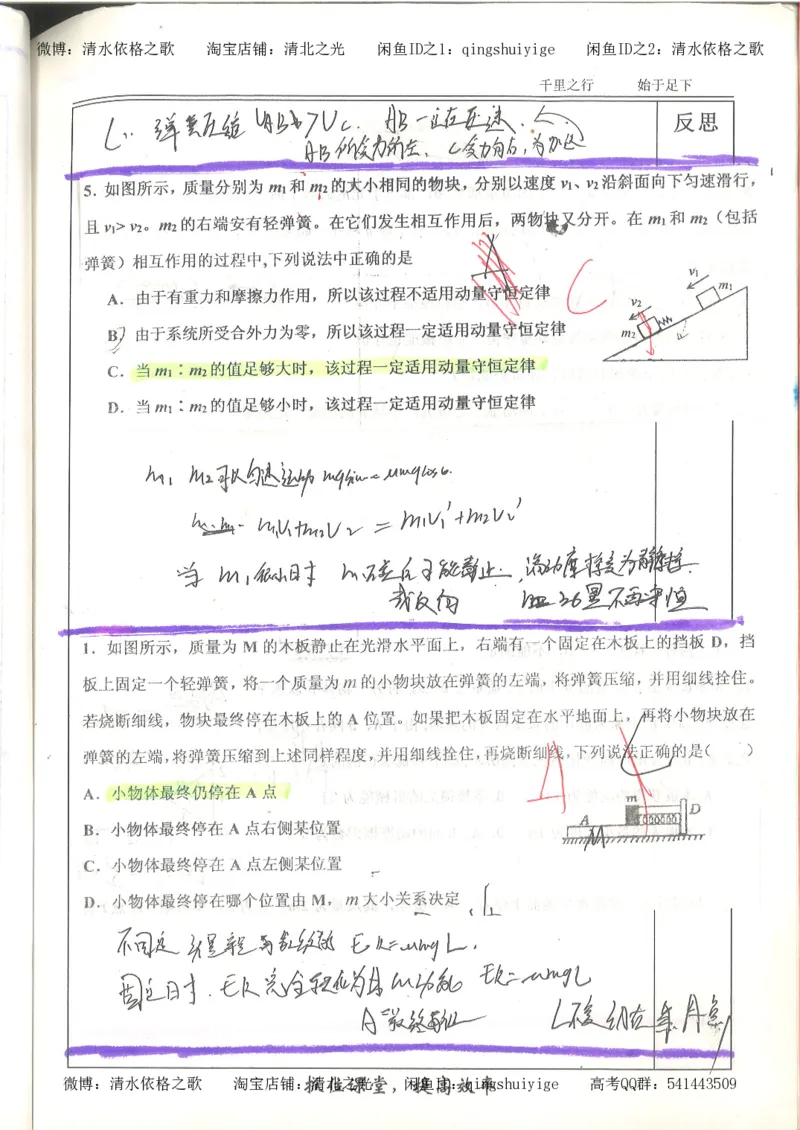 微博：清水依格之歌 淘宝店铺：清北之光 闲鱼ID之1：qingshuiyige 闲鱼ID之2：清水依格之歌
千里之行 始于足下
弹簧压缩
AB一直在
反思
5. 如图所示，质量分别为 m₁ 和 m₂ 的大小相同的物块，分别以速度 v₁、v₂ 沿斜面向下匀速滑行，
且 v₁> v₂。m₂ 的右端安有轻弹簧。在它们发生相互作用后，两物块又分开。在 m₁ 和 m₂（包括
弹簧）相互作用的过程中,下列说法中正确的是
C
A．由于有重力和摩擦力作用，所以该过程不适用动量守恒定律
B．由于系统所受合外力为零，所以该过程一定适用动量守恒定律
C．当 m₁∶m₂ 的值足够大时，该过程一定适用动量守恒定律
D．当 m₁∶m₂ 的值足够小时，该过程一定适用动量守恒定律
v₁
m₁
v₂
m₂
m₁ m₂可以匀速运动 mgsinα=μmgcosα
m₁v₁+m₂v₂=m₁v₁'+m₂v₂'
当 m₁很小时 可能静止. 滑动摩擦变为静摩擦.
或反向 动量不再守恒
1．如图所示，质量为 M 的木板静止在光滑水平面上，右端有一个固定在木板上的挡板 D，挡
板上固定一个轻弹簧，将一个质量为 m 的小物块放在弹簧的左端，将弹簧压缩，并用细线拴住。
若烧断细线，物块最终停在木板上的 A 位置。如果把木板固定在水平地面上，再将小物块放在
弹簧的左端,将弹簧压缩到上述同样程度,并用细线拴住,再烧断细线,下列说法正确的是（ ）
A
A．小物体最终仍停在 A 点
B．小物体最终停在 A 点右侧某位置
C．小物体最终停在 A 点左侧某位置
D．小物体最终停在哪个位置由 M，m 大小关系决定
m
A
D
M
不固定 EK=μmgL.
固定时. EK完全转化为 EK=μmgL
L不变 A点
微博：清水依格之歌 淘宝店铺：清北之光 闲鱼ID：qingshuiyige 高考QQ群：541443509
抓住课堂，提高效率